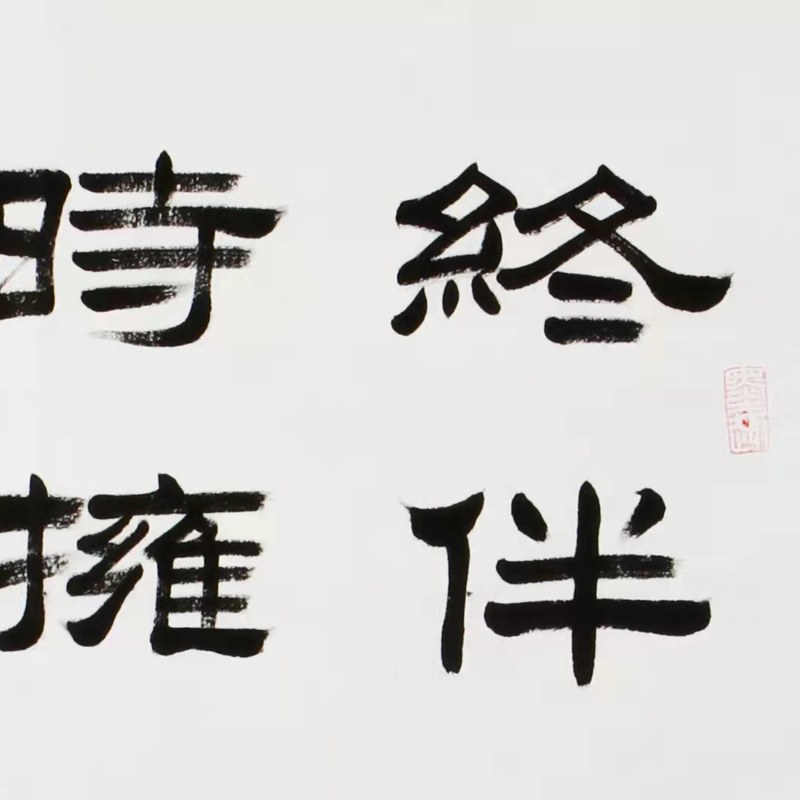 終伴
時擁